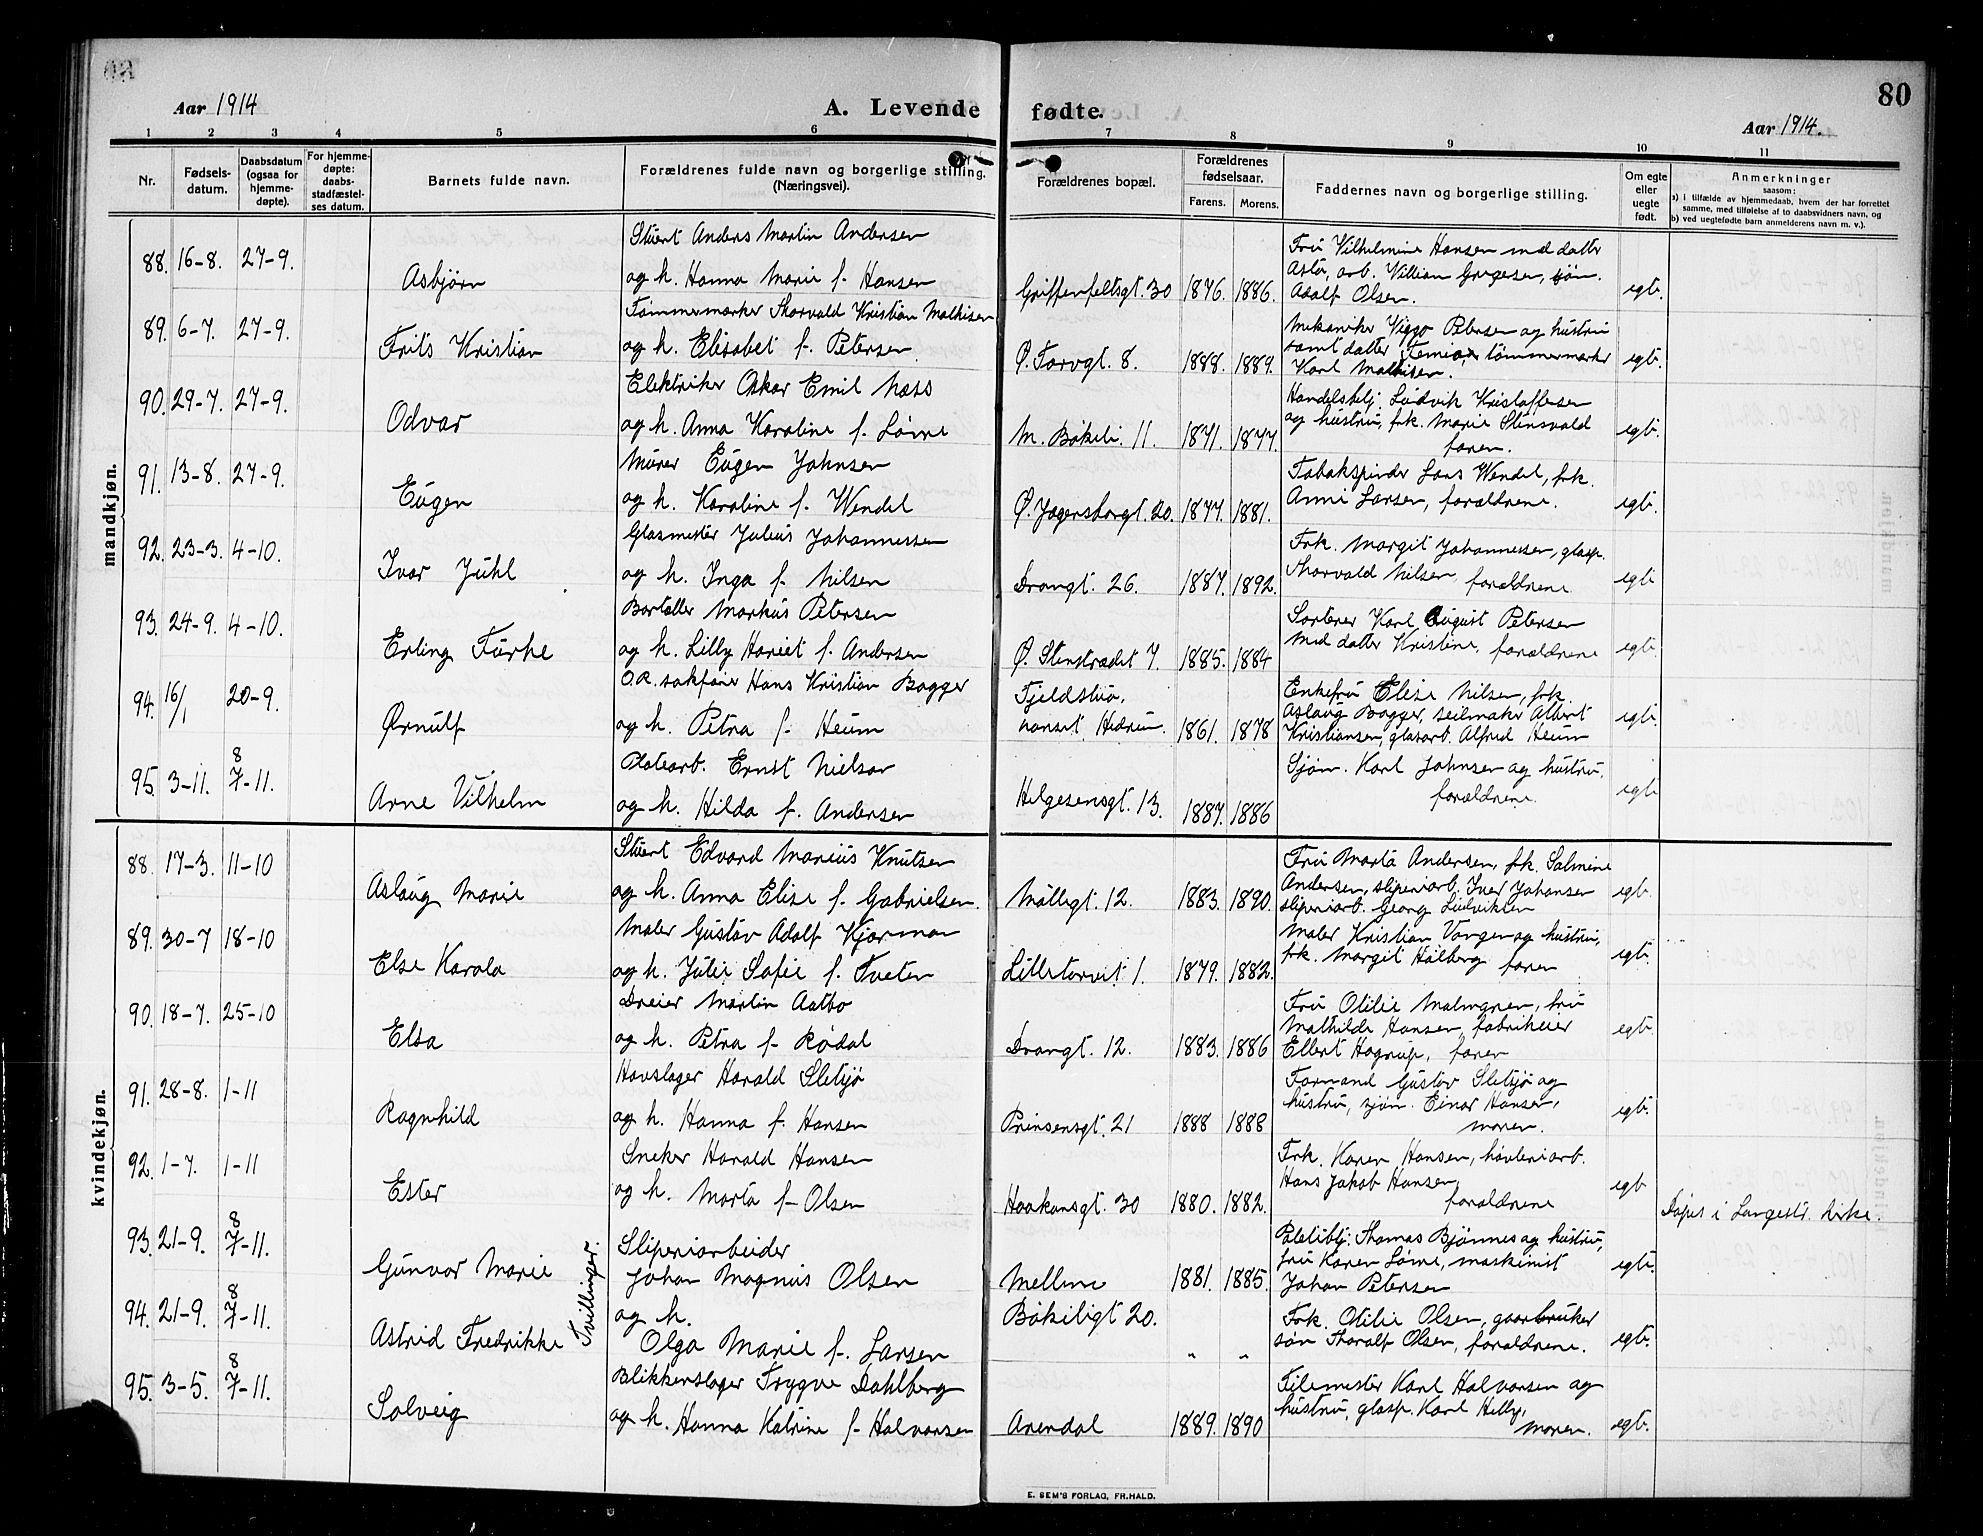 80
Aar 1914
A. Levende fødte.
Aar 1914.
1 2 3 4 5 6 7 8 9 10 11
Nr.
Fødsels-
datum.
Daabsdatum
(ogsaa for
hjemme-
døpte).
For hjemme-
døpte:
daabs-
stadfæstel-
ses datum.
Barnets fulde navn.
Forældrenes fulde navn og borgerlige stilling.
(Næringsvei).
Forældrenes bopæl.
Forældrenes
fødselsaar.
Farens. Morens.
Faddernes navn og borgerlige stilling.
Om egte
eller
uegte
født.
Anmerkninger
saasom:
a) i tilfælde av hjemmedaab, hvem der har forrettet
samme, med tilføielse af to daabsvidners navn, og
b) ved uegtefødte barn anmelderens navn m. v.).
mandkjøn.
Stuert Anders Martin Andersen
88. 16-8. 27-9. Asbjørn
og h. Hanna Marie f. Hansen
Griffenfeltsgt. 30 1876. 1886.
Fru Vilhelmine Hansen med datter
Asta, arb. Villian Gregersen, sjøm.
Adolf Olsen. egt.
Tømmermerker Thorvald Kristian Mathisen
89. 6-7. 27-9. Frits Kristian
og h. Elisabet f. Petersen
Ø. Torvgt. 8. 1888. 1889.
Mekaniker Viggo Petersen og hustru
samt datter tømmermerker
Karl Mathisen. egt.
Elektriker Oskar Emil Næss
90. 29-7. 27-9. Odvar
og h. Anna Karoline f. Lørne
M. Bøkeli. 11. 1871. 1877.
Handelsbetj. Ludvik Kristoffersen
og hustru, frk. Marie Stensvold
faren. egt.
Murer Eugen Johnsen
91. 13-8. 27-9. Eugen
og h. Karoline f. Wendel
Ø. Jegersborgt. 20. 1877. 1881.
Tobakspinder Lars Wendel, frk.
Anni Larsen, forældrene. egt.
Glasmester Julius Johannessen
92. 23-3. 4-10. Ivar Juhl
og h. Inga f. Nilsen
Drangt. 26. 1887. 1892.
Frk. Margit Johannessen, glasp.
Thorvald Nilsen, forældrene egt.
Bortæller Markus Petersen
93. 24-9. 4-10. Erling Furhe
og h. Lilly Hariet f. Andersen
Ø. Stenstrædet 7. 1885. 1884
Sorterer Karl August Petersen
med datter Kristine, forældrene egt.
O.R. sakfører Hans Kristian Bagger
94. 16/1 20-9. Ørnulf
og h. Petra f. Heum
Fjeldstuo,
Hedrum. 1861. 1878
Enkefru Elise Nilsen, frk.
Aslaug Bagger, seilmaker Albert
Kristiansen, glasarb. Alfred Heum egt.
Platearb. Ernst Nielsen
95. 3-11. 8/7-11. Arne Vilhelm
og h. Hilda f. Andersen
Helgesensgt. 13. 1887. 1886
Sjøm. Karl Johnsen og hustru.
forældrene. egt.
kvindekjøn.
Stuert Edvard Marius Knutsen
88. 17-3. 11-10 Aslaug Marie
og h. Anna Elise f. Gabrielsen.
Møllegt. 12. 1883. 1890.
Fru Marta Andersen, frk. Salmine
Andersen, sliperiarb. Iver Johansen
sliperiarb. Georg Ludviksen egt.
Maler Gustav Adolf Kjorman
89. 30-7 18-10 Else Karola
og h. Julie Sofie f. Tveten
Lilletorvet 1. 1879. 1882.
Maler Kristian Vangen og hustru,
frk. Margit Halberg faren egt.
Dreier Martin Aasbo
90. 18-7. 25-10 Elsa
og h. Petra f. Rødal
Drangt. 12. 1883. 1886
Fru Otilie Malmgren, fru
Mathilde Hansen, fabrikeier
Ellert Hagrup, faren egt.
Hovslager Harald Sletsjø
91. 28-8. 1-11 Ragnhild
og h. Hanna f. Hansen
Prinsensgt. 21 1888 1888
Formand Gustav Sletsjø og
hustru, sjøm. Einar Hansen,
moren. egt.
Sneker Harald Hansen
92. 1-7. 1-11 Ester
og h. Marta f. Olsen
Haakonsgt. 30 1880. 1882.
Frk. Karen Hansen, høvleriarb.
Hans Jakob Hansen,
forældrene egt Døpt i Langestr. kirke.
Sliperiarbeider
93. 21-9. 8/7-11. Gunvor Marie
Tvillinger.
Johan Magnus Olsen
Mellem 1881. 1885.
Politibtj. Thomas Bjønnes og hustru,
fru Karen Lørne, maskinist
Johan Petersen egt.
94. 21-9. 8/7-11. Astrid Fredrikke
og h.
Olga Marie f. Larsen
Bøkeligt 20. " "
Frk. Otilie Olsen, gaardbruker
søn Thoralf Olsen, forældrene. egt.
Blikkenslager Trygve Dahlberg
95. 3-5. 8/7-11. Solveig
og h. Hanna Katrine f. Halvorsen
Arendal 1889. 1890
Filemester Karl Halvorsen og
hustru, glasp. Karl Helly,
moren. egt.
E. SEM'S FORLAG, FR.HALD.